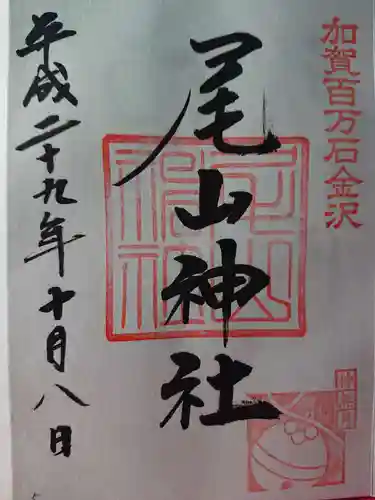 加賀百万石金沢
尾山神社
平成二十九年十月八日